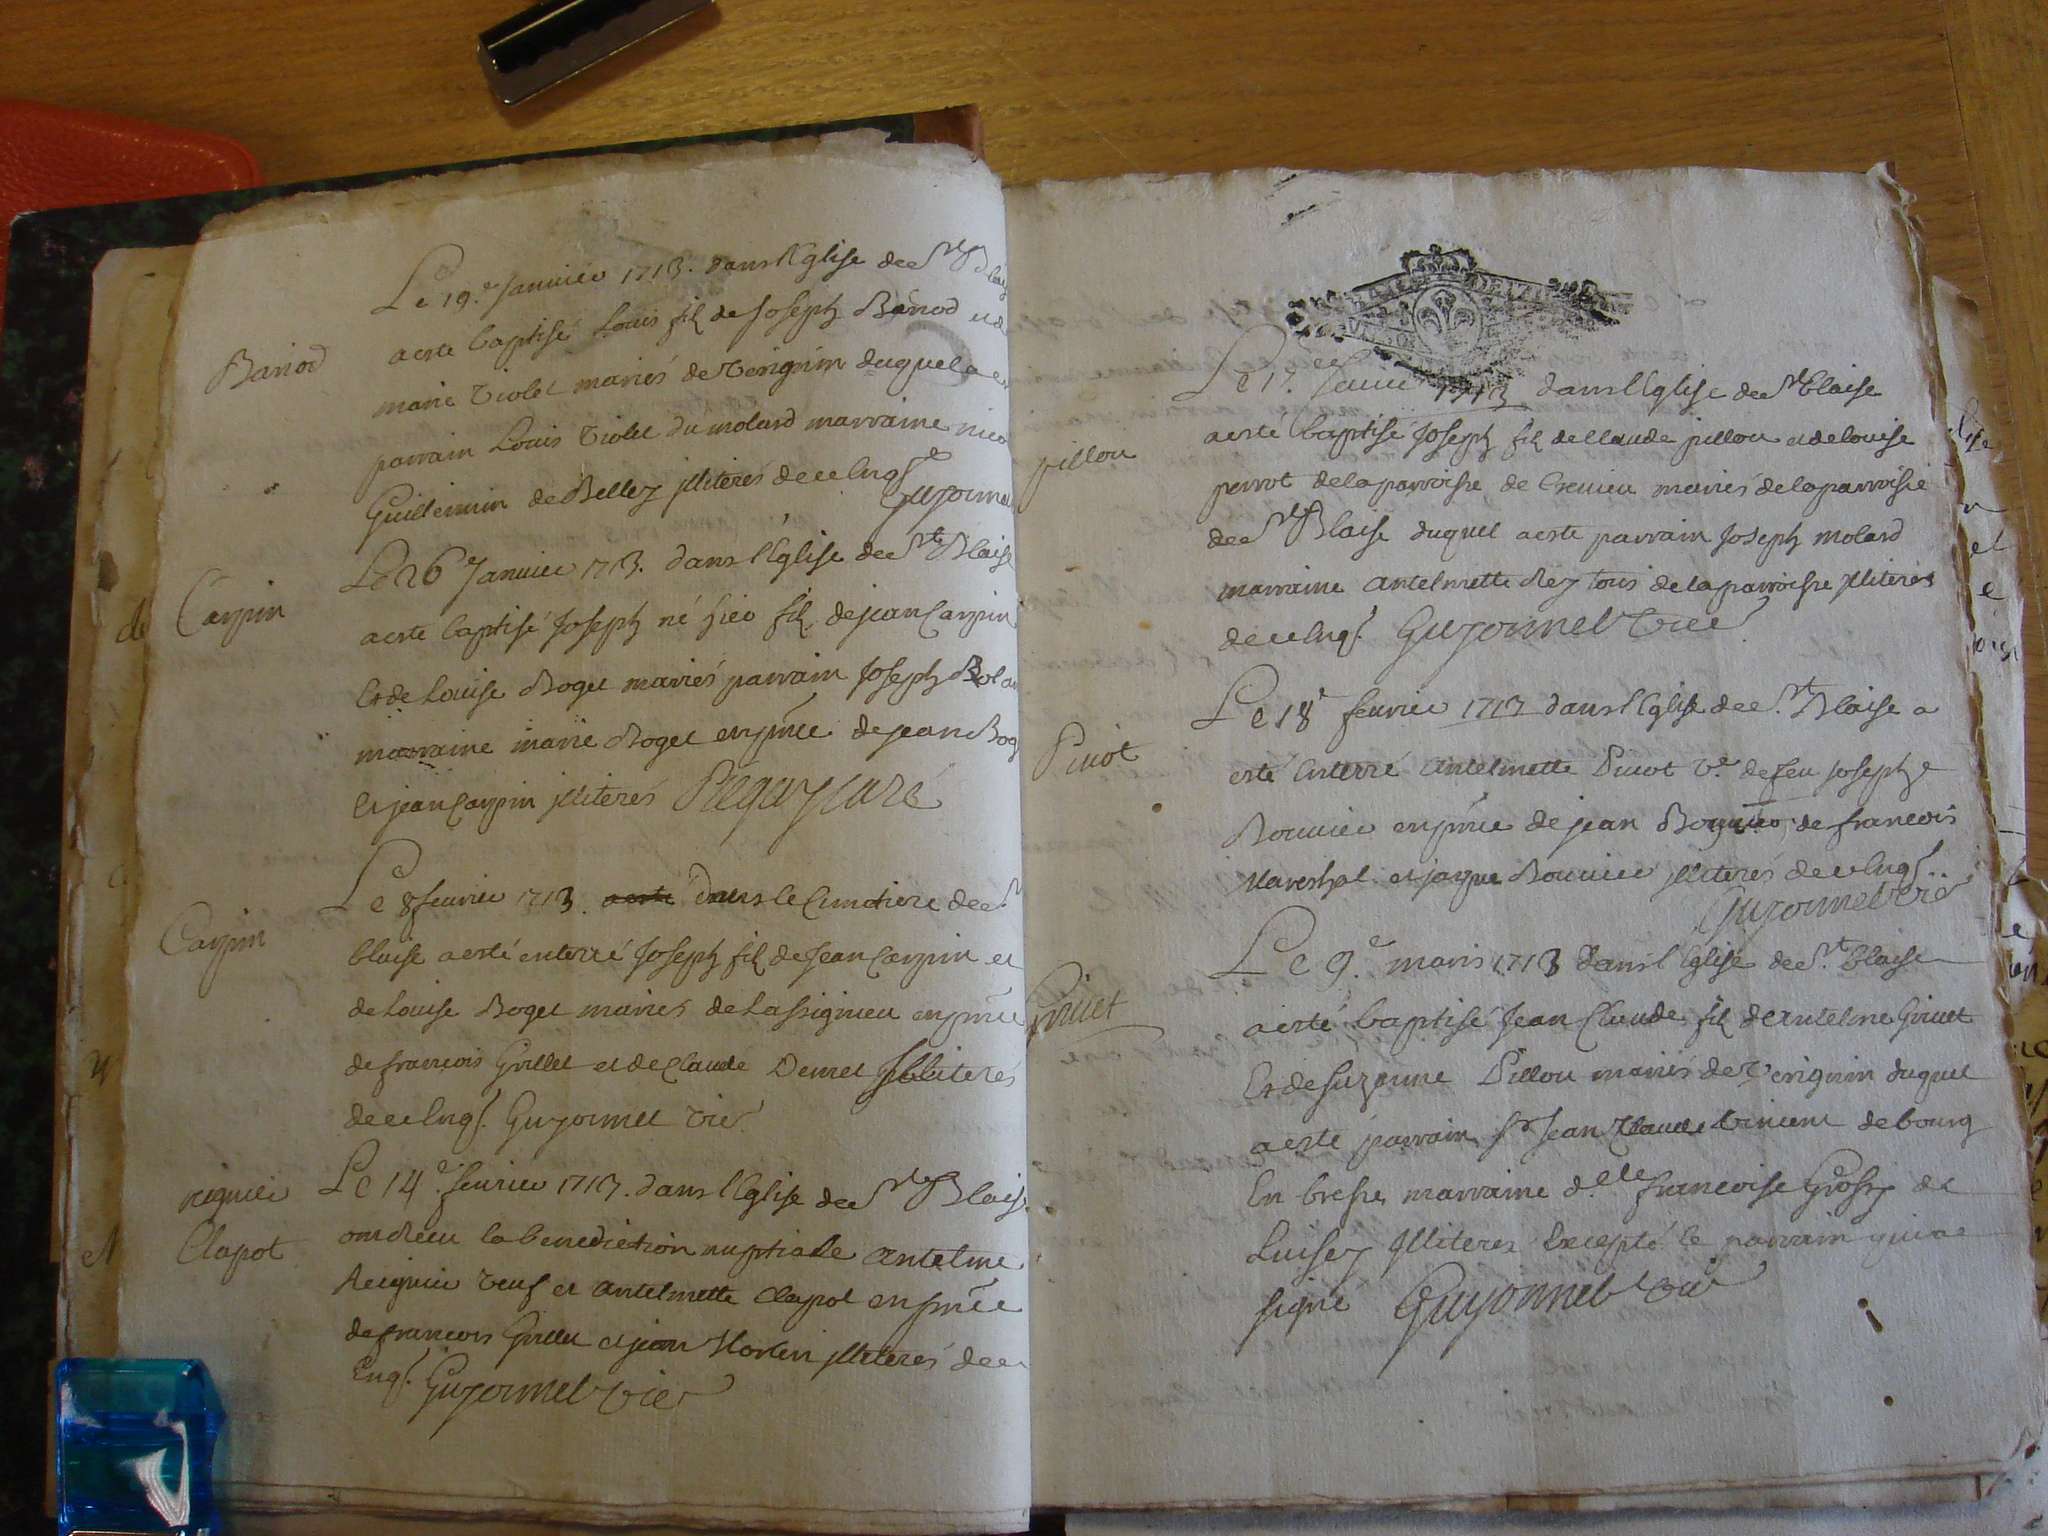 Le 19.e Janvier 1713. dans l'Eglise de St Blais
Banod
a esté baptisé Louis fils de Joseph Banod et de
marie Violet mariés de Verignin duquel a es
parrain Louis Violet du molard marraine nico
Guillermin de Belley illiteres de ce Enqs
Guyonnet
Carpin
Le 26e Janvier 1713. dans l'Eglise de St Blaise
a esté baptisé Joseph né hier fils de jean Carpin
Et de Louise Roget mariés parrain Joseph
marraine marie Roget en pnce de jean Rog
et jean Carpin illiterés curé
Carpin
Le 8 fevrier 1713. a esté dans le Cimetiere de St
blaise a esté enterré Joseph fils de Jean Carpin et
de Louise Roget mariés de Lassignieu en pnce
de françois Grillet et de Claude Demet illiterés
de ce Enqs. Guyonnet vic
reignier
Clapot
Le 14.e fevrier 1713. dans l'Eglise de St Blaise
ont reçu la benediction nuptiale Antelme
Reignier veuf et Antelmette Clapot en pnce
de françois Grillet et jean illiterés de ce
Enqs. Guyonnet vic
pillou
Le 1er. 1713 dans l'Eglise de St Blaise
a esté baptisé Joseph fils de Claude pillou et de louise
perrot de la parroisse de Cremieu mariés de la parroisse
de St Blaise duquel a esté parrain Joseph molard
marraine Antelmette Rey tous de la parroisse illiteres
de ce Enqs. Guyonnet vic
Piuot
Le 18e fevrier 1713 dans l'Eglise de St. Blaise a
esté Enterré Antelmette Piuot ve. de feu Joseph
Bouvier en pnce de jean de francois
Mareschal et jaque Bouvier illiteres de ce Enqs.
Guyonnet vic
Griuet
Le 9.e mars 1713 dans l'Eglise de St. blaise
a esté baptisé Jean Claude fils d'Antelme Griuet
Et de Suzanne Pillou mariés de Verignin duquel
a esté parrain Sr Jean Claude Vincent de bourg
En bresse marraine delle francoise Grossy de
Luisey Illiteres Excepté le parrain qui a
signé Guyonnet vic